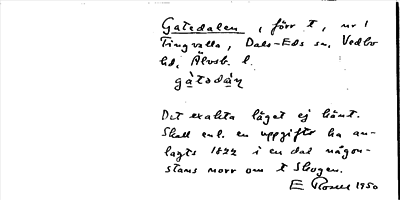 Gatedalen, förr t, nr 1
Tingvalla, Dals-Eds sn, Vedbo
hd, Älvsb. l.
gàtədàṇ
Det exakta läget ej känt.
Skall enl. en uppgift ha an-
lagts 1822 i en dal någon-
stans norr om t Skogen.
E 1950